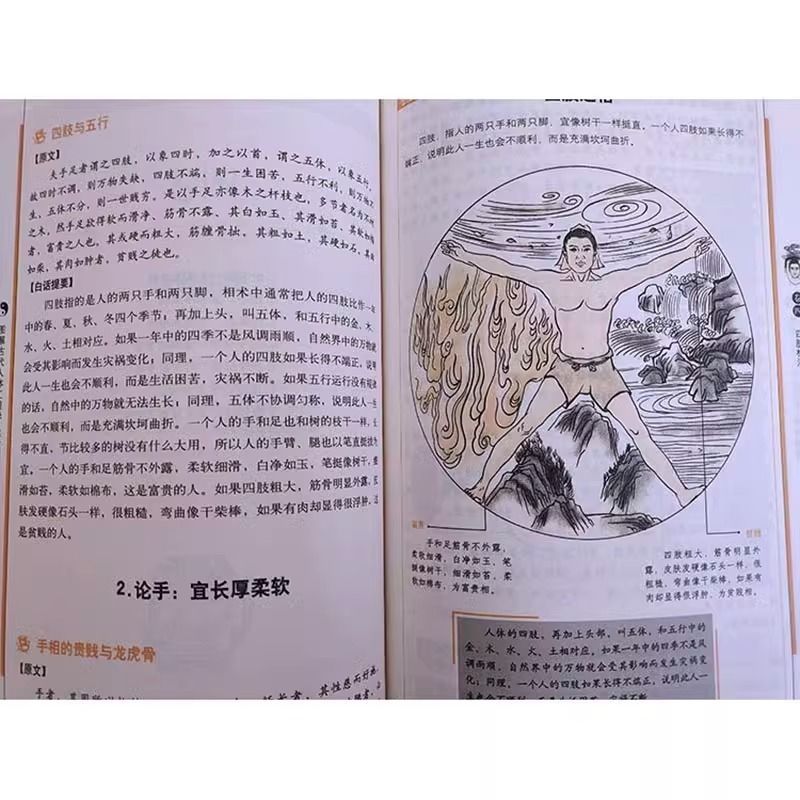 四肢与五行
【原文】
夫手足者谓之四肢，以象四时，加之以首，谓之五体，以象五行，
故四时不调，则万物夭缺，四肢不端，则一生困苦，五行不利，则万物不
生，五体不分，则一世贱穷。是以手足亦像木之杆枝也，多节者名为不材
之木，然手足欲得软而滑净，筋骨不露，其白如玉，其滑如苔，其软如绵
者，富贵之人也。其或硬而粗大，筋缠骨拙，其粗如土，其硬如石，其曲
如柴，其肉如肿者，贫贱之徒也。
【白话提要】
四肢指的是人的两只手和两只脚，相术中通常把人的四肢比作一年
中的春、夏、秋、冬四个季节；再加上头，叫五体，和五行中的金、木、
水、火、土相对应。如果一年中的四季不是风调雨顺，自然界中的万物就
会受其影响而发生灾祸变化；同理，一个人的四肢如果长得不端正，说明
此人一生也会不顺利，而是生活困苦，灾祸不断。如果五行运行没有规律
的话，自然中的万物就无法生长；同理，五体不协调匀称，说明此人一生
也不顺利，而是充满坎坷曲折。一个人的手和足也和树的枝干一样，长
得不直，节比较多的树没有什么大用，所以人的手臂、腿也以笔直挺拔为
宜，一个人的手和足筋骨不外露，柔软细滑，白净如玉，笔挺像树干，细
滑如苔，柔软如棉布，这是富贵的人。如果四肢粗大，筋骨明显外露，皮
肤发硬像石头一样，很粗糙，弯曲像干柴棒，如果有肉却显得很浮肿，这
是贫贱的人。
2.论手：宜长厚柔软
手相的贵贱与龙虎骨
【原文】
四肢，指人的两只手和两只脚，宜像树干一样挺直。一个人四肢如果长得不
端正，说明此人一生也会不顺利，而是充满坎坷曲折。
富贵
手和足筋骨不外露，
柔软细滑，白净如玉，笔
挺像树干，细滑如苔，柔
软如棉布，为富贵相。
贫贱
四肢粗大，筋骨明显外
露，皮肤发硬像石头一样，很
粗糙，弯曲像干柴棒，如果有
肉却显得很浮肿，为贫贱相。
人体的四肢，再加上头部，叫五体，和五行中的
金、木、水、火、土相对应。如果一年中的四季不是风
调雨顺，自然界中的万物就会受其影响而发生灾祸变
化；同理，一个人的四肢如果长得不端正，说明此人一